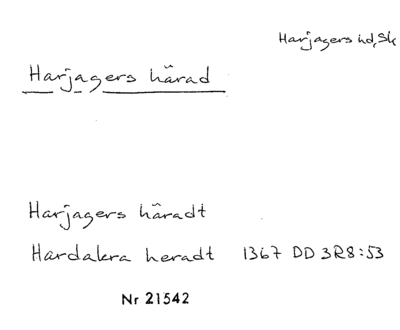 Harjagers hd, Sk
Harjagers härad
Harjagers häradt
Hardakra heradt 1367 DD 3R8:53
Nr 21542